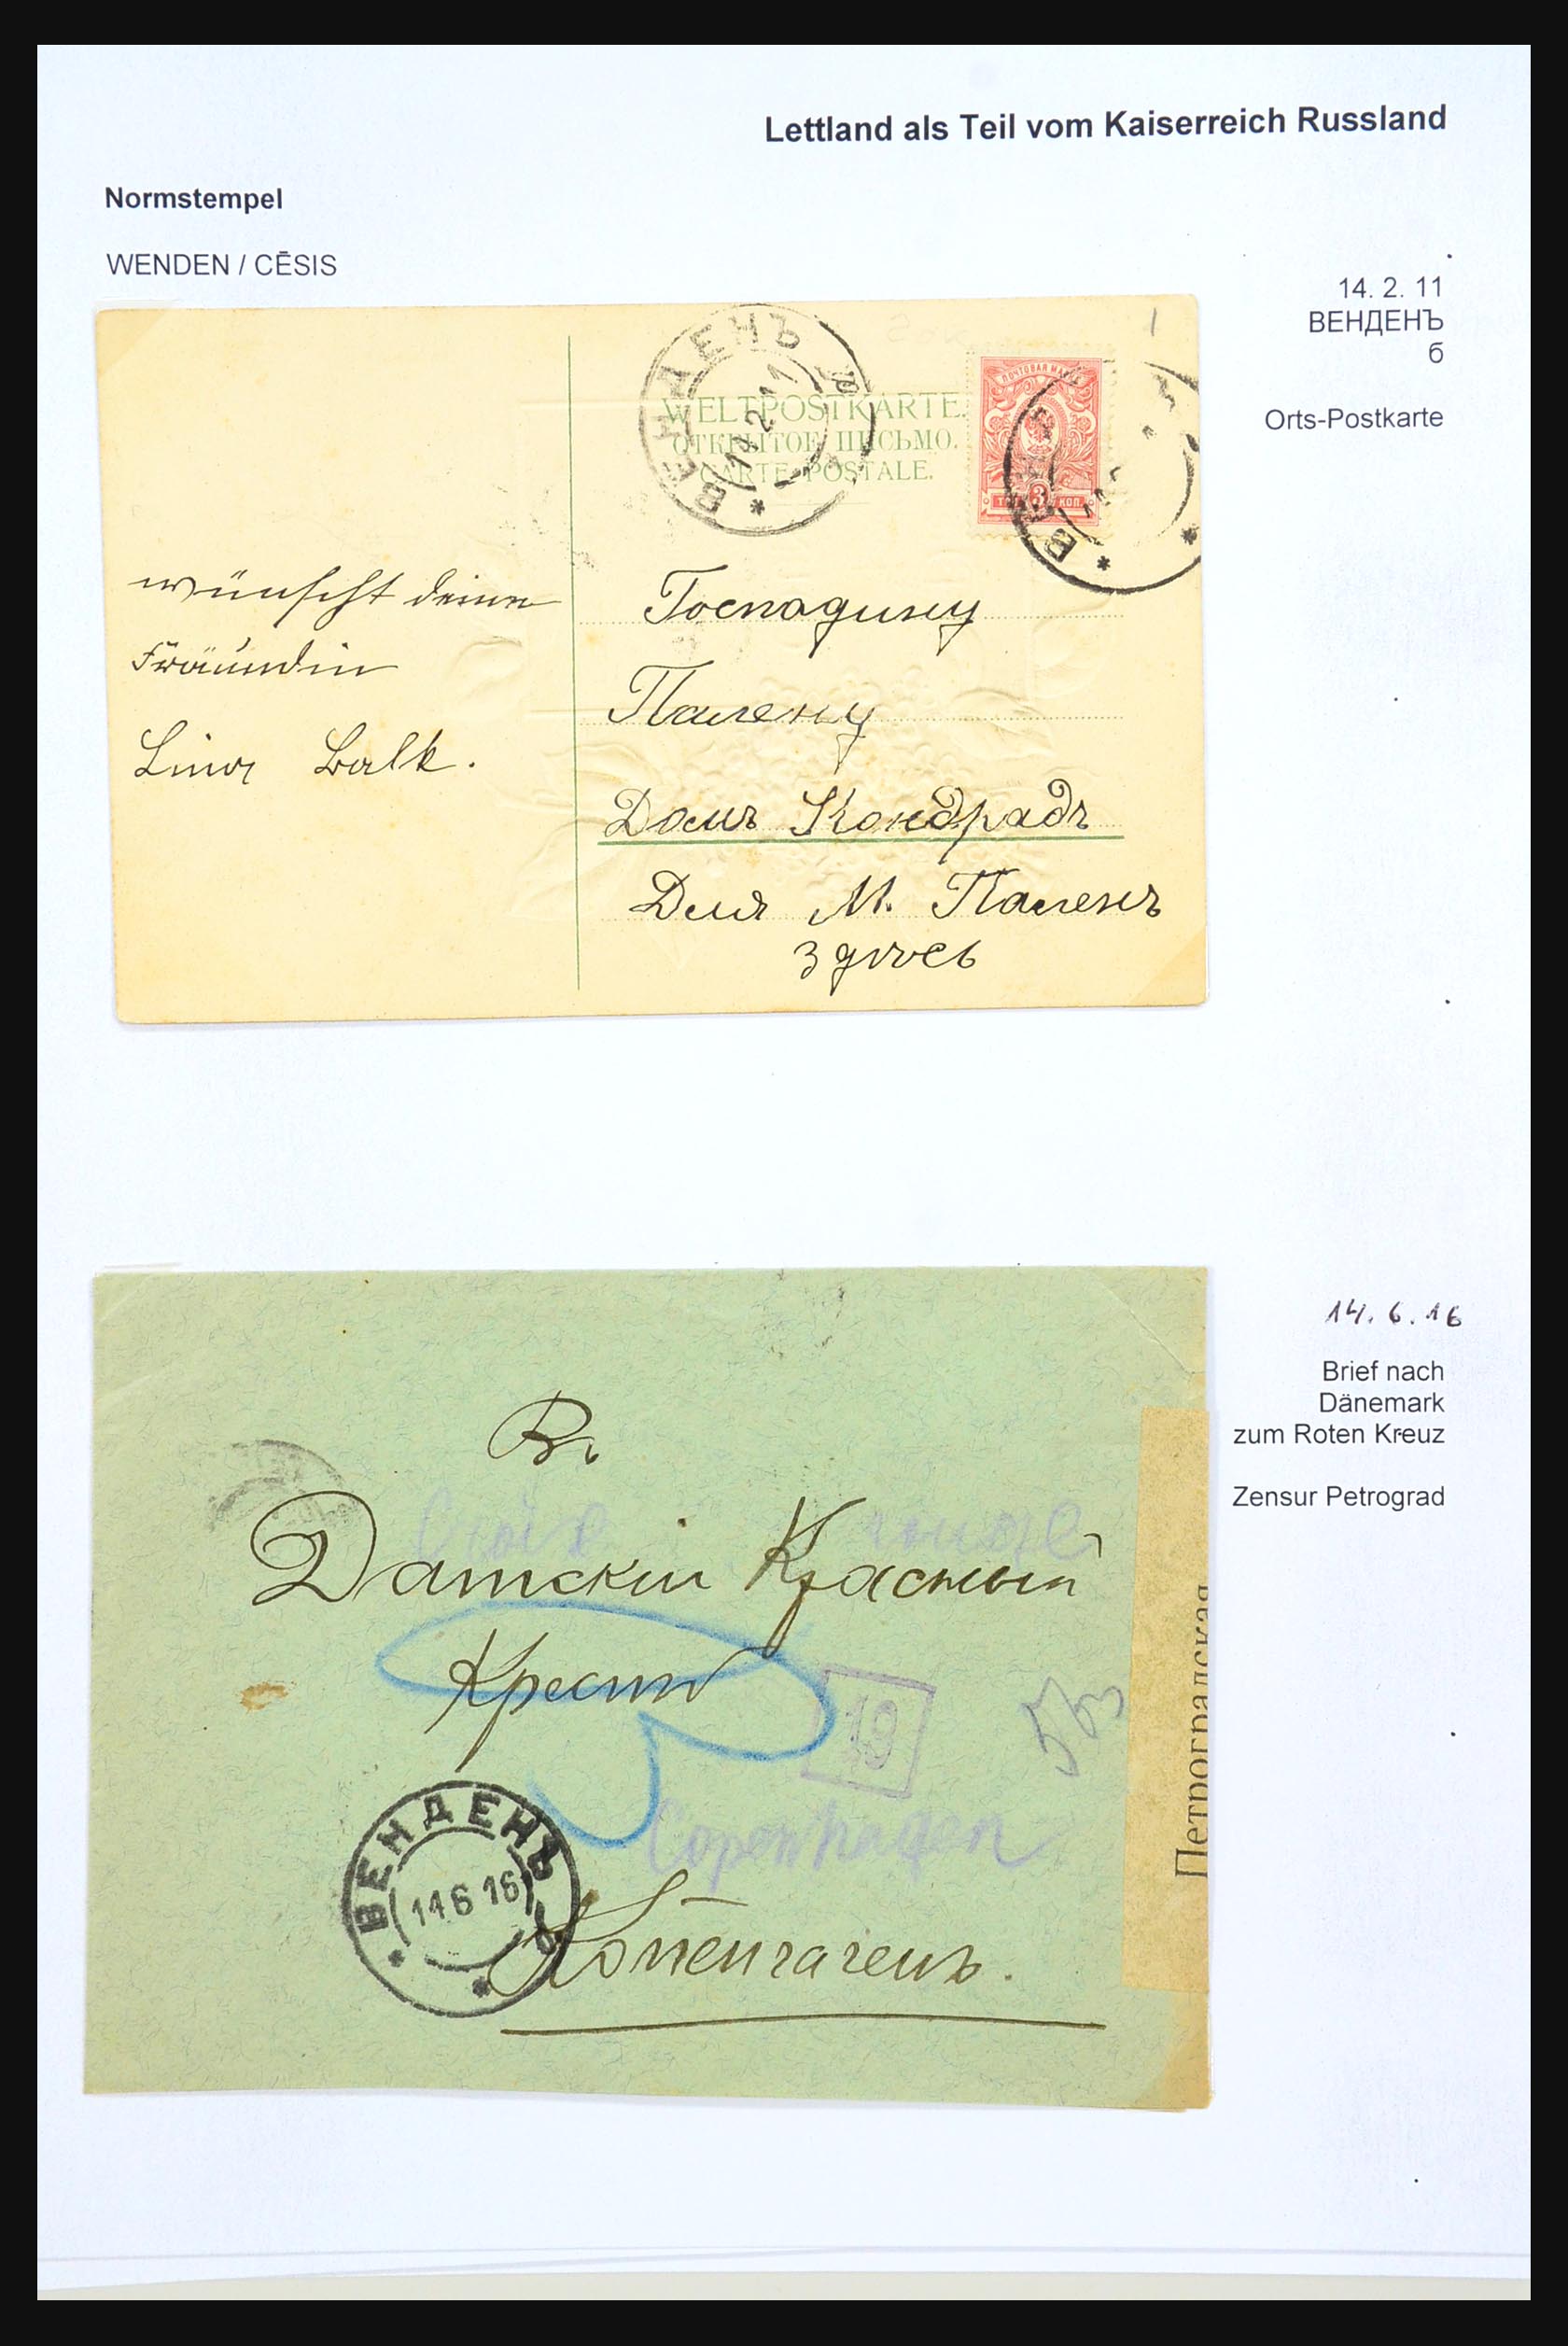 Lettland als Teil vom Kaiserreich Russland
Normstempel
WENDEN / CĒSIS
14. 2. 11
ВЕНДЕНЪ
б
Orts-Postkarte
ВЕНДЕНЪ
14 2 11
WELTPOSTKARTE.
ОТКРЫТОЕ ПИСЬМО.
CARTE POSTALE.
ПОЧТОВАЯ МАРКА
3
КОП.
wünscht deine
Fräundin
Lina Balk.
Господину
Палену
Домъ Кондрадъ
Для М. Паленъ
здѣсь
14. 6. 16
Brief nach
Dänemark
zum Roten Kreuz
Zensur Petrograd
Въ
Датскій Красный
Крестъ
19
Copenhagen
ВЕНДЕНЪ
14 6 16
б
Копенгагенъ.
Петроградская